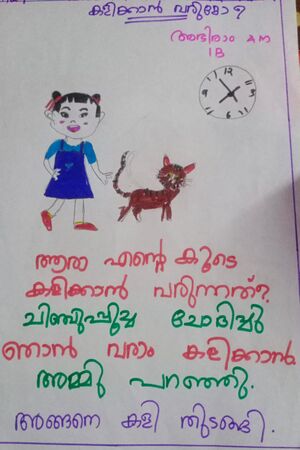 കളിക്കാൻ വരുമോ?
അഭിരാം എ ന
1B
ആരാ എൻ്റെ കൂടെ
കളിക്കാൻ വരുന്നത്?
ചിഞ്ചുപ്പൂച്ച ചോദിച്ചു
ഞാൻ വരാം കളിക്കാൻ.
അമ്മു പറഞ്ഞു.
അങ്ങനെ കളി തുടങ്ങി.